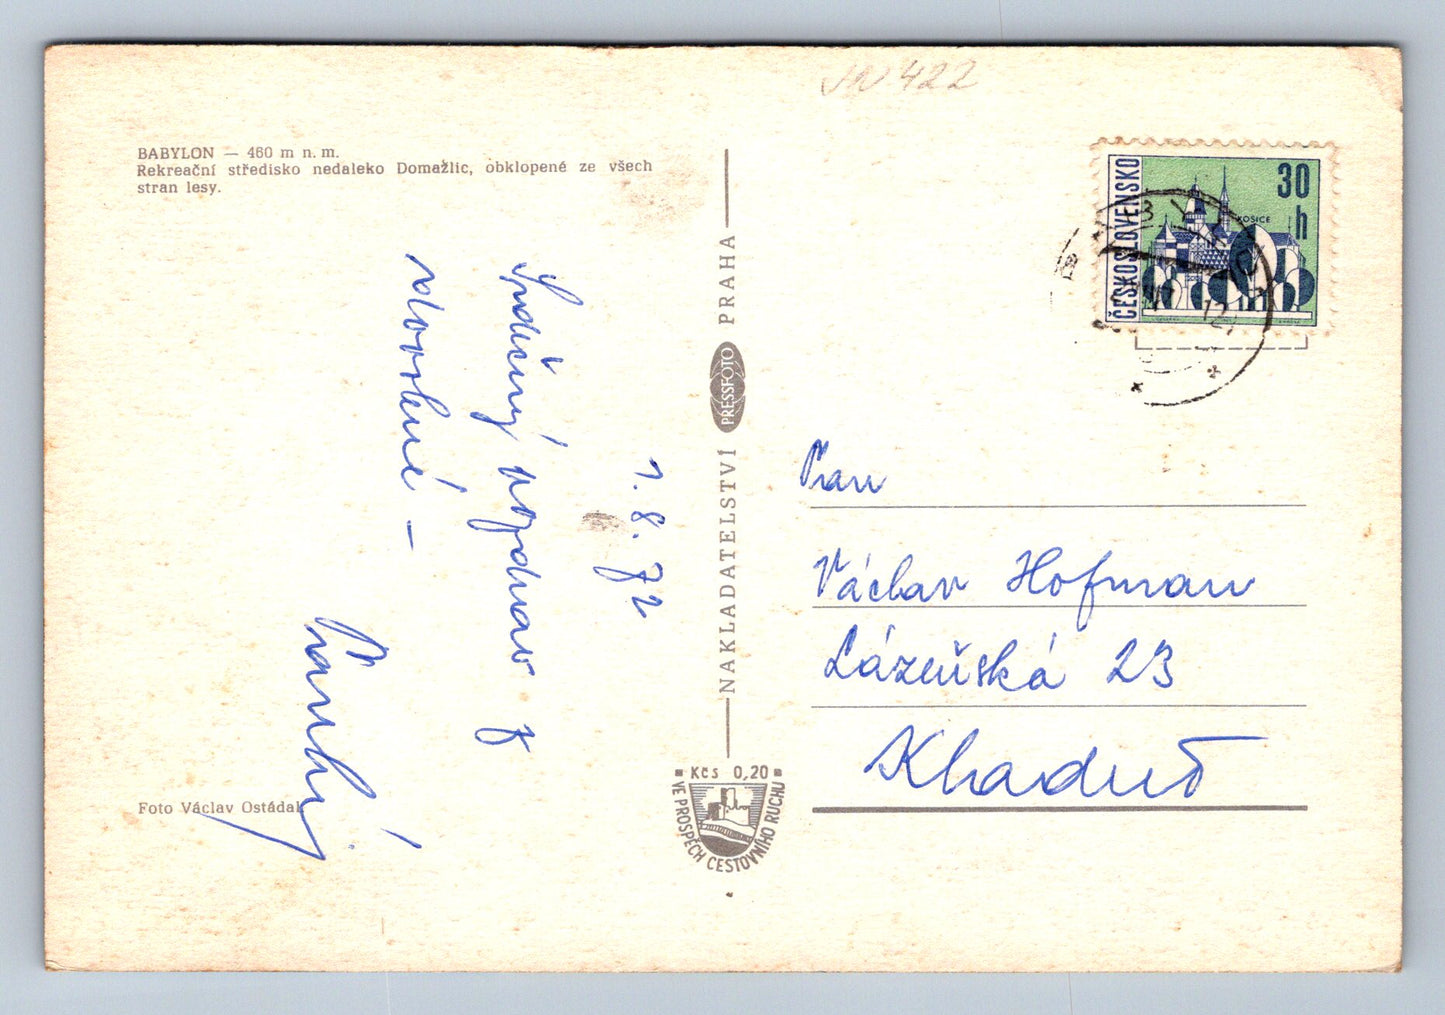 BABYLON — 460 m n. m.
Rekreační středisko nedaleko Domažlic, obklopené ze všech
stran lesy.
1. 8. 72
Srdečný pozdrav z
dovolené –
Foto Václav Ostádal
NAKLADATELSTVÍ PRESSFOTO PRAHA
Kčs 0,20
VE PROSPĚCH CESTOVNÍHO RUCHU
422
ČESKOSLOVENSKO
30
h
KOŠICE
Pan
Václav Hofman
Lázeňská 23
Kladno